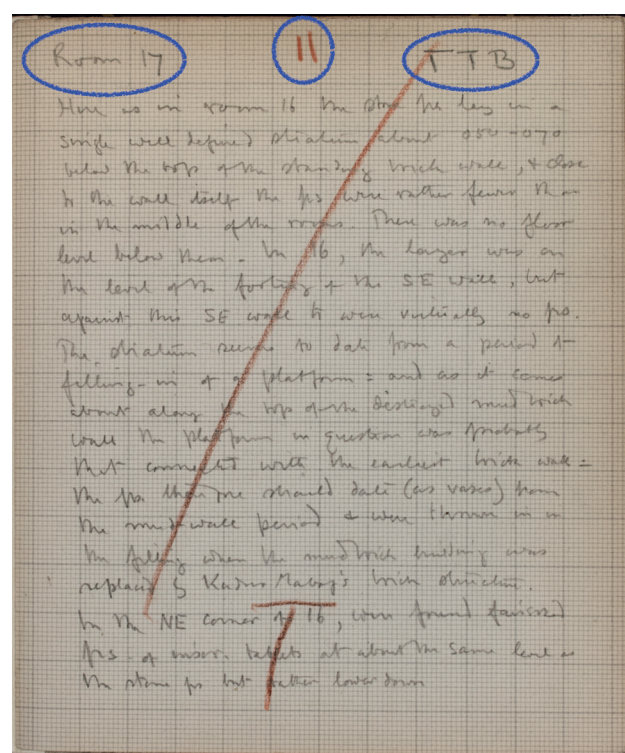 Room 17
11
TTB
Here as in room 16 the stone fs lay in a
single well defined stratum about 050-070
below the top of the standing brick wall, & close
to the wall itself the fs were rather fewer than
in the middle of the rooms. There was no floor
level below them. In 16, the layer was on
the level of the footing of the SE wall, but
against this SE wall were virtually no fs.
The stratum seems to date from a period of
filling-in of a platform = and as it comes
about along the top of the destroyed mud brick
wall the platform in question was probably
that connected with the earliest brick wall =
the fs therefore should date (as vases) from
the mud-wall period & were thrown in in
the filling when the mud brick building was
replaced by Kudur Mabug's brick structure.
In the NE corner of 16, were found
fs. of tablets at about the same level as
the stone fs but rather lower down
T